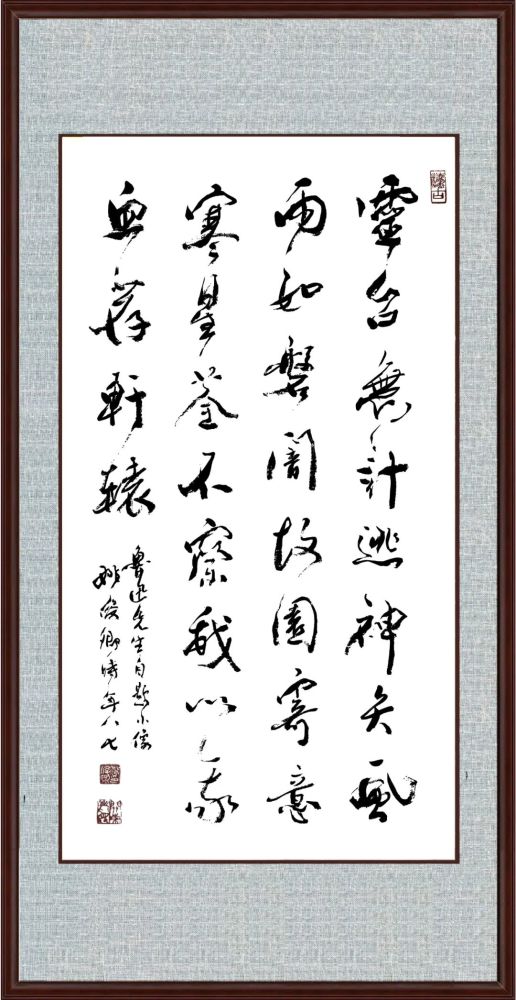 靈台無計逃神矢風
雨如磐闇故園寄意
寒星荃不察我以我
血荐軒轅
魯迅先生自題小像
姚俊卿時年八七